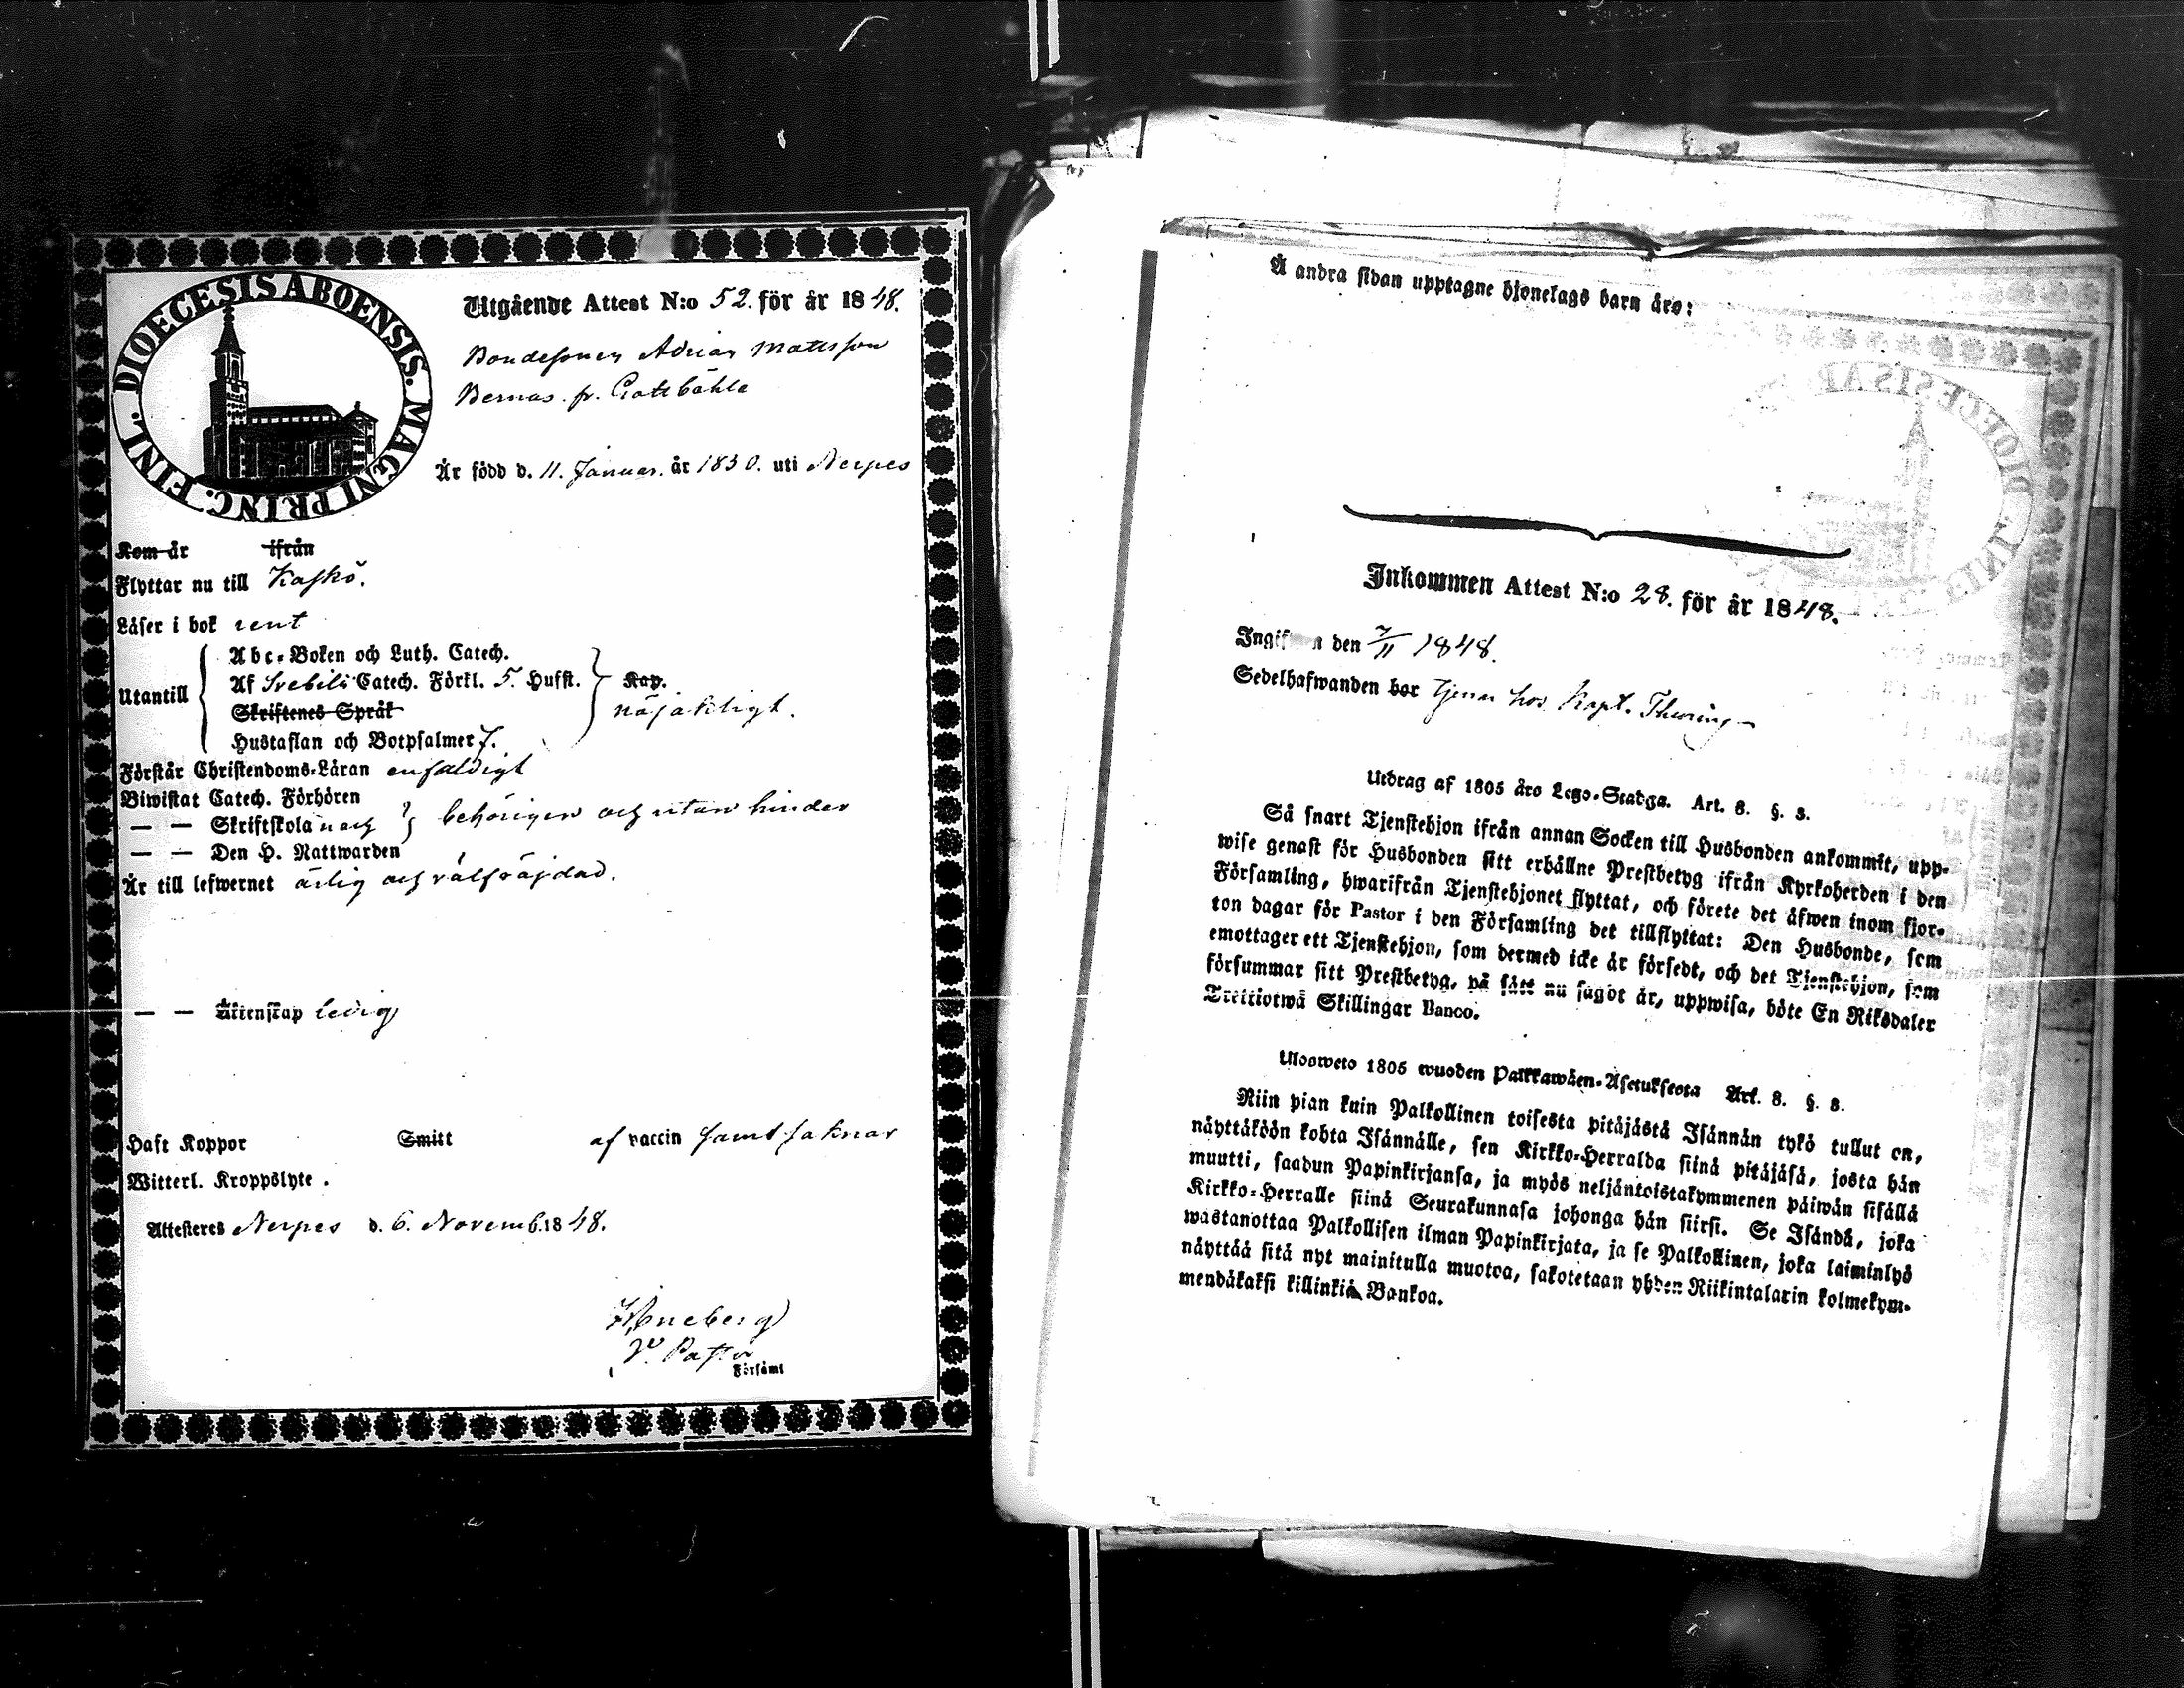 DIOECESIS ABOENSIS. MAGNI PRINC. FINL.
Utgående Attest N:o 52. för år 1848.
Bondesonen Adrian Mattsson
Bernas. fr. Gottböhle
Är född d. 11. Januar. år 1830. uti Nerpes
Kom år ifrån
Flyttar nu till Kaskö.
Läser i bok rent
Utantill
Abc-Boken och Luth. Catech.
Af Svebilii Catech. Förkl. 5. Hufst.
Skriftenes Språk
Hustaflan och Botpsalmer 7.
Kap.
nöjaktligt.
Förstår Christendoms-Läran enfaldigt
Biwistat Catech. Förhören
— — Skriftskola och
— — Den H. Nattwarden
behörigen och utan hinder
Är till lefwernet ärlig och välfräjdad.
— — Äktenskap ledig
Haft Koppor Smitt af vaccin samt saknar
Witterl. Kroppslyte .
Attesteras Nerpes d. 6. Novemb. 1848.
V. Pastor
Församl
Å andra sidan upptagne hjonelags barn äro:
Inkommen Attest N:o 28. för år 1848.
Ingifwen den 7/11 1848.
Sedelhafwanden bor tjenar hos Kapt. Thuring
Utdrag af 1805 åro Lego-Stadga. Art. 8. §. 3.
Så snart Tjenstehjon ifrån annan Socken till Husbonden ankommit, upp-
wise genast för Husbonden sitt erhållne Prestbetyg ifrån Kyrkoherden i den
Församling, hwarifrån Tjenstehjonet flyttat, och förete det äfwen inom fjor-
ton dagar för Pastor i den Församling det tillflyttat: Den Husbonde, som
emottager ett Tjenstehjon, som dermed icke är försedt, och det Tjenstehjon, som
försummar sitt Prestbetyg, på sätt nu sagdt är, uppwisa, böte En Riksdaler
Trettiotwå Skillingar Banco.
Ulosweto 1805 wuoden Palkkawäen-Asetuksesta Art. 8. §. 3.
Niin pian kuin Palkollinen toisesta pitäjästä Isännän tykö tullut on,
näyttäköön kohta Isännälle, sen Kirkko-Herralda siinä pitäjäsä, josta hän
muutti, saadun Papinkirjansa, ja myös neljäntoistakymmenen päiwän sisällä
Kirkko-Herralle siinä Seurakunnasa johonga hän siirsi. Se Isändä, joka
wastanottaa Palkollisen ilman Papinkirjata, ja se Palkollinen, joka laiminlyö
näyttää sitä nyt mainitulla muotoa, sakotetaan yhden Riikintalarin kolmekym-
mendäkaksi killinkiä Bankoa.